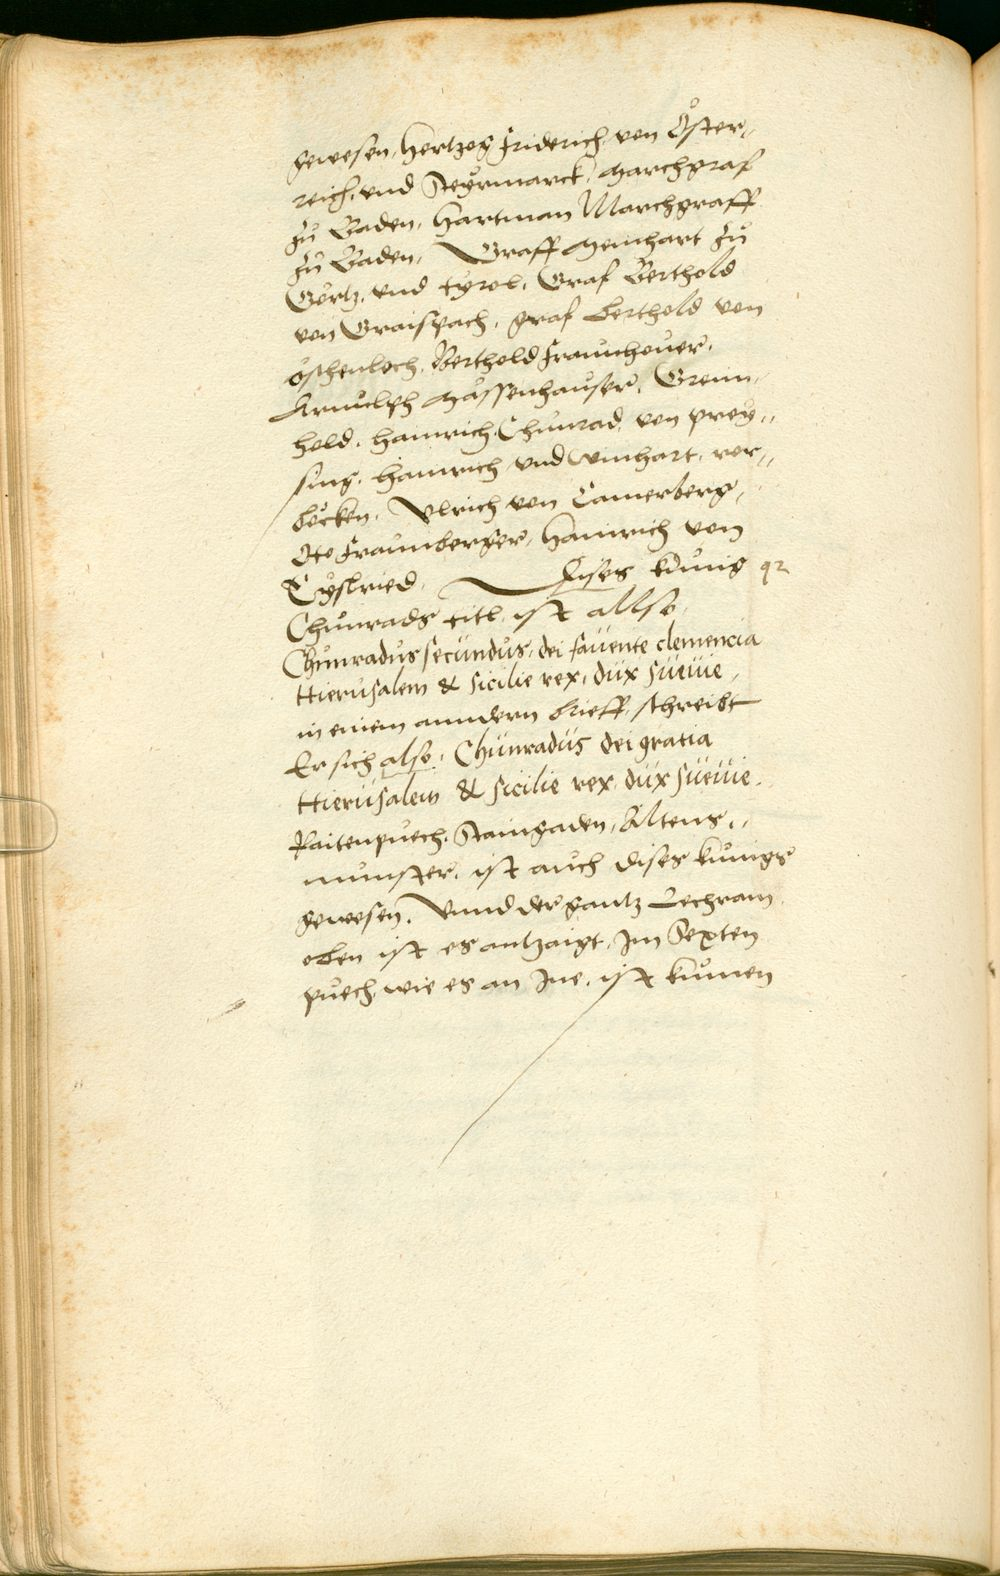 gewesen, Hertzog Friderich, von Öster,,
reich, vnd Steyrmarck, Marchgraf
zu Baden, Hartman Marchgraff
zu Baden, Graff Meinhart zu
Görtz, vnd tyrol, Graf Berthold
von Graispach, graf Berthold von
öschenloch, Berthold Fraunhover,
Arnulph Massenhauser, Grim,,
hold, Hainrich, Chunrad, von prey,,
sing, Hainrich vnd Winhart, ror,,
becken, Vlrich von Camerberg,
Oto Fraunberger, Hainrich von
Eyslried, Dises kunig 92
Chunrads titl, ist allso,
Chunradus secundus, dei favente clemencia
Hierusalem & Sicilie rex, dux Suevie,
in einem anndern brieff, schreibt
Er sich also, Chunradus dei gratia
Hierusalem & Sicilie rex, dux Suevie.
Raitenpuech, Staingaden, Altens,,
munster, ist auch dises kunigs
gewesen, Vnnd der gantz Lechrain
oben ist es antzaigt, Im Sexten
puech, wie es an Ine, ist kumen